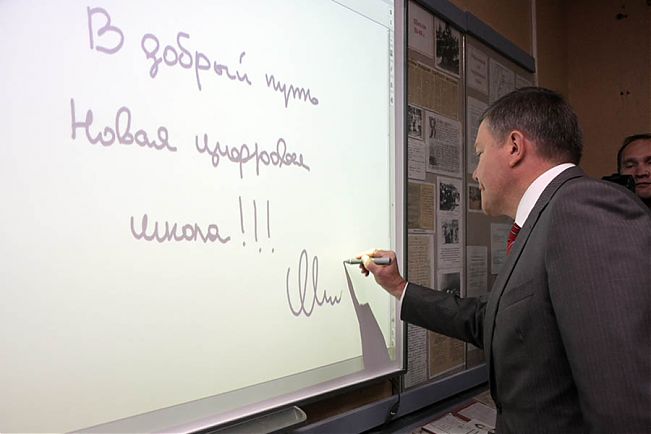 В добрый путь
Новая цифровая
школа!!!